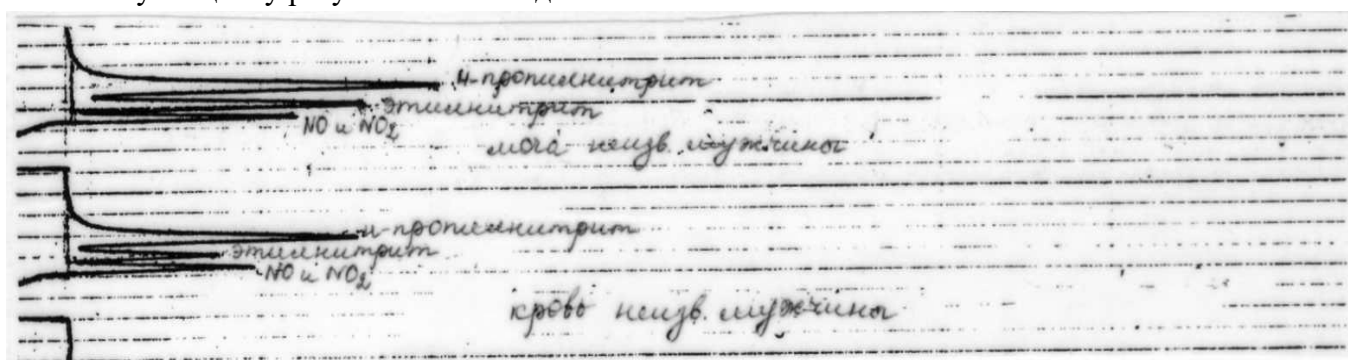 н-пропилнитрит
этилнитрит
NO и NO₂
моча неизв. мужчины
н-пропилнитрит
этилнитрит
NO и NO₂
кровь неизв. мужчины